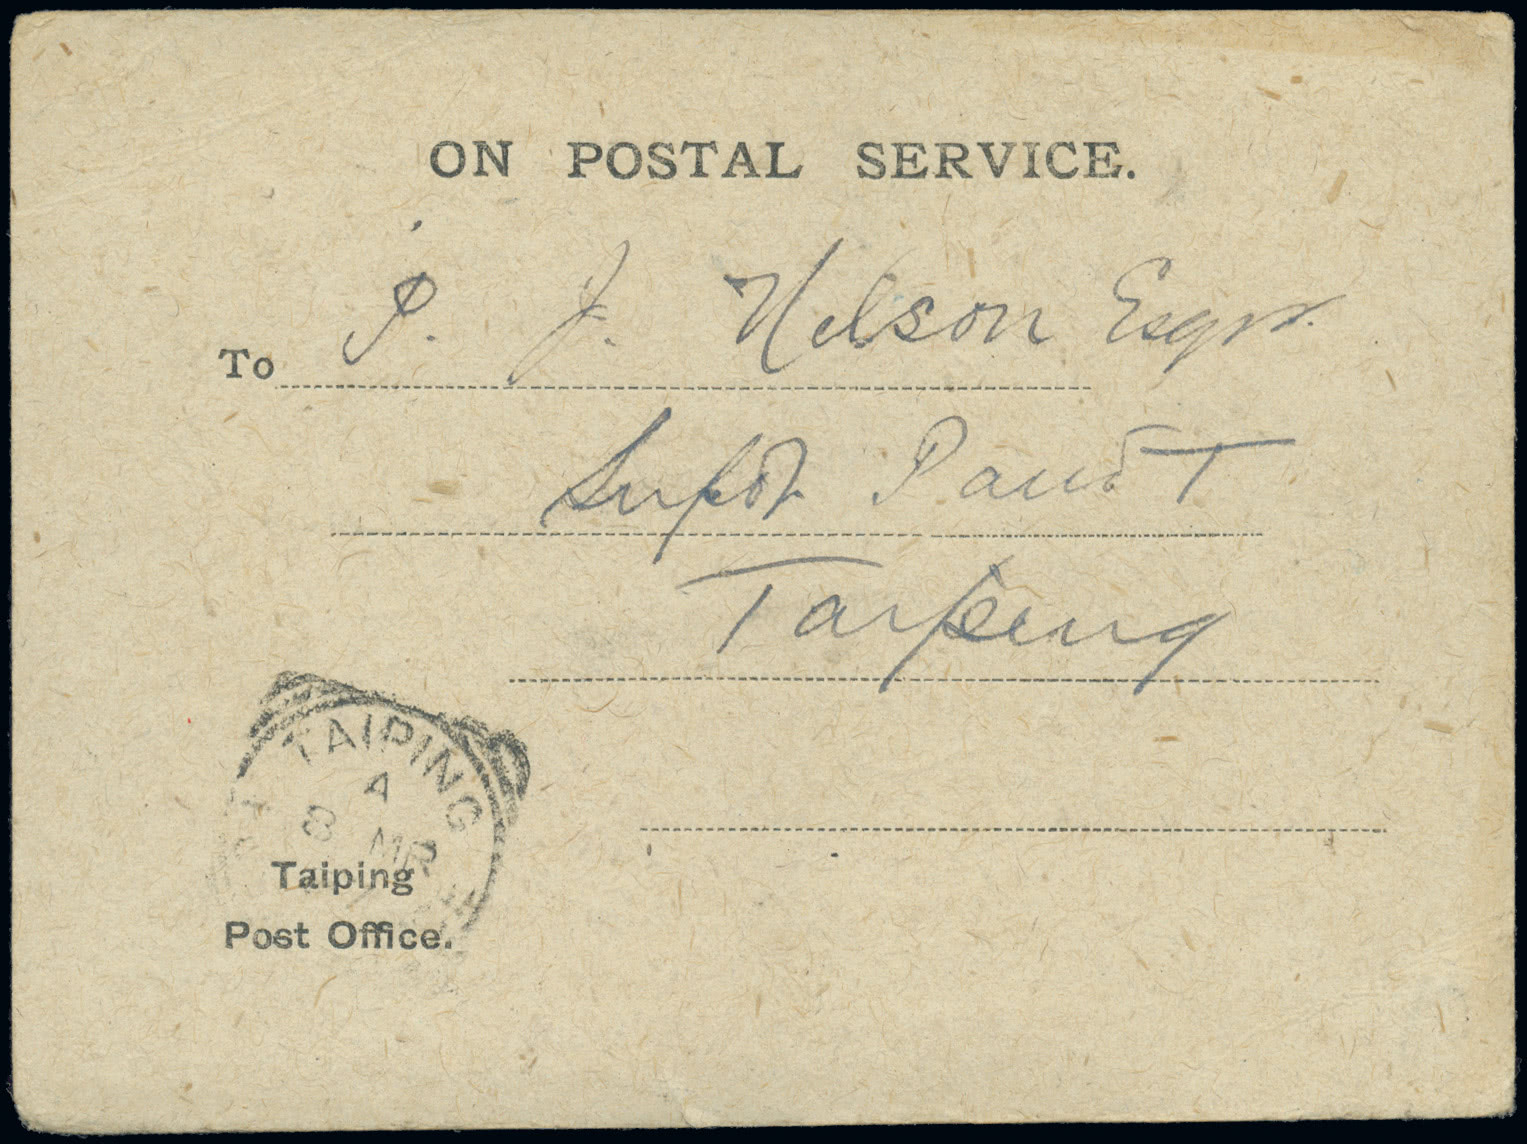 ON POSTAL SERVICE.
To P. J. Nelson Esqr.
Supdt P and T
Taiping
TAIPING
A
8 MR
Taiping
Post Office.